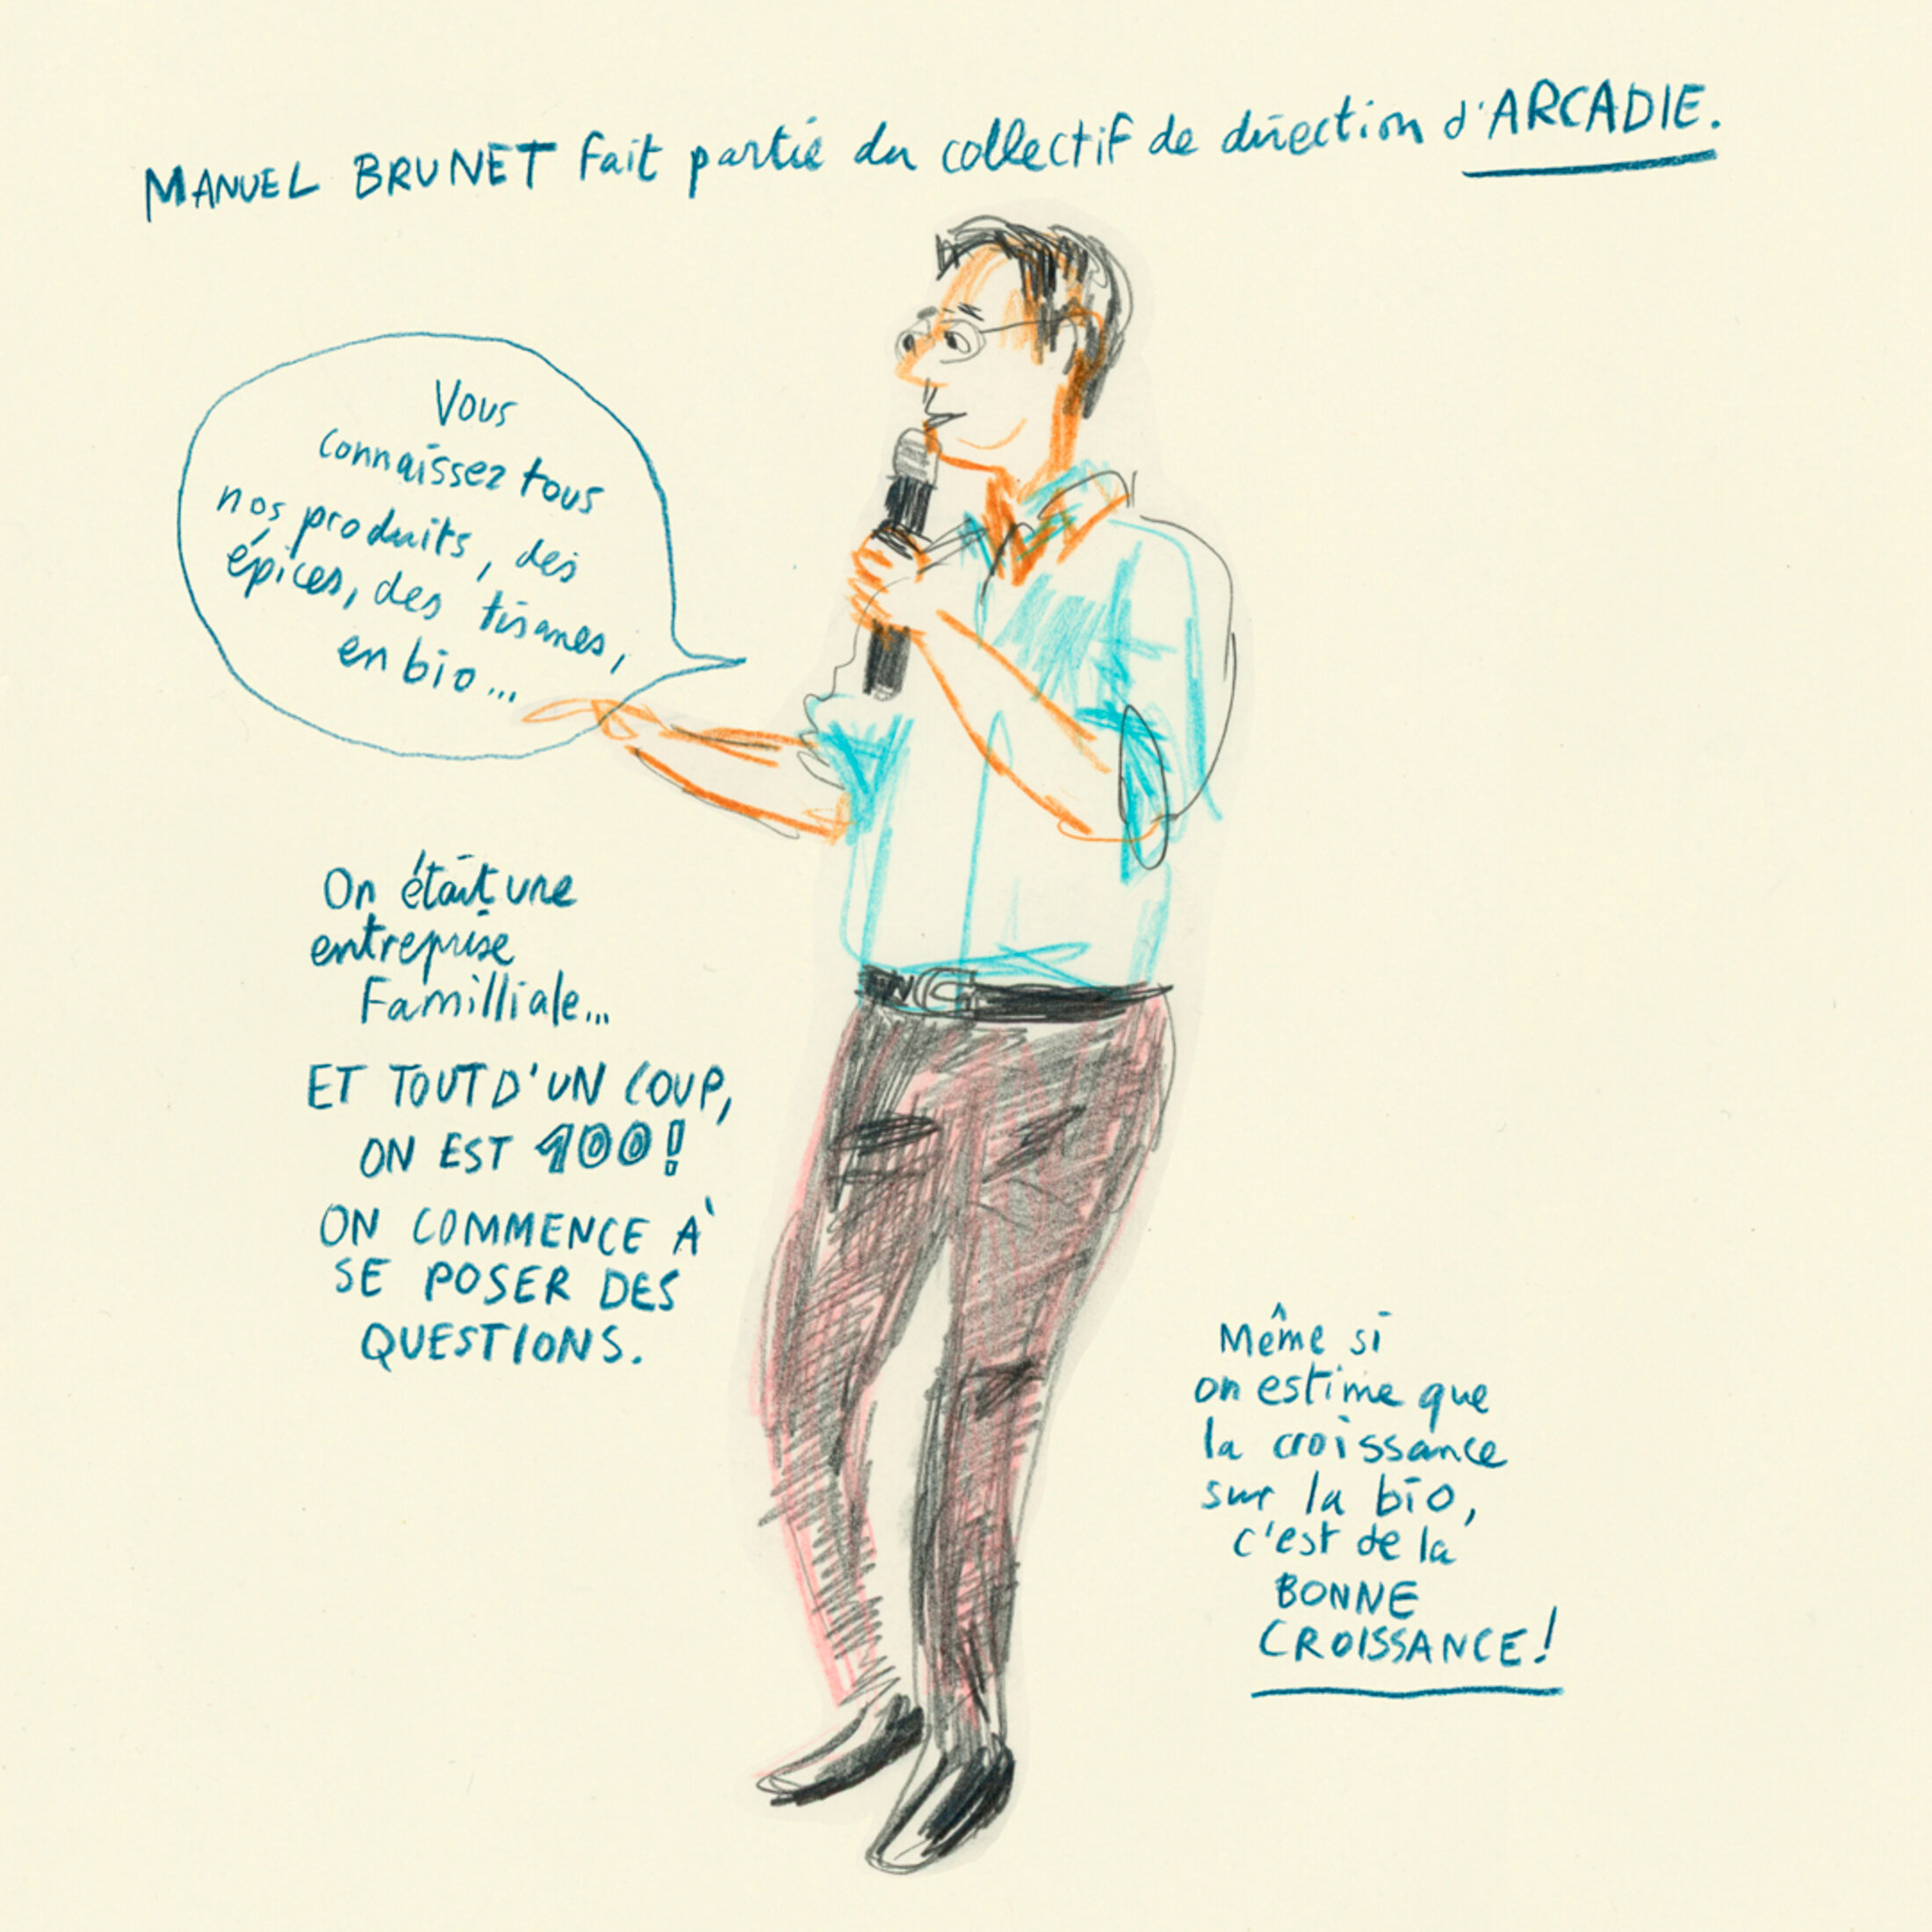 MANUEL BRUNET fait partie du collectif de direction d'ARCADIE.
Vous
connaissez tous
nos produits, des
épices, des tisanes,
en bio...
On était une
entreprise
Familliale...
ET TOUT D'UN COUP,
ON EST 100!
ON COMMENCE À
SE POSER DES
QUESTIONS.
Même si
on estime que
la croissance
sur la bio,
c'est de la
BONNE
CROISSANCE!